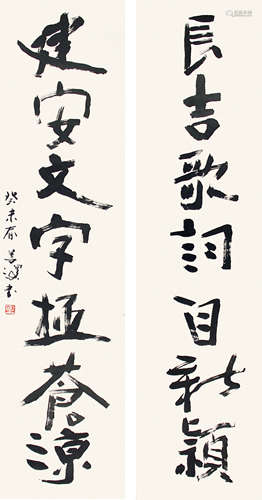 長吉歌詞自新穎
建安文字極蒼涼
癸未春